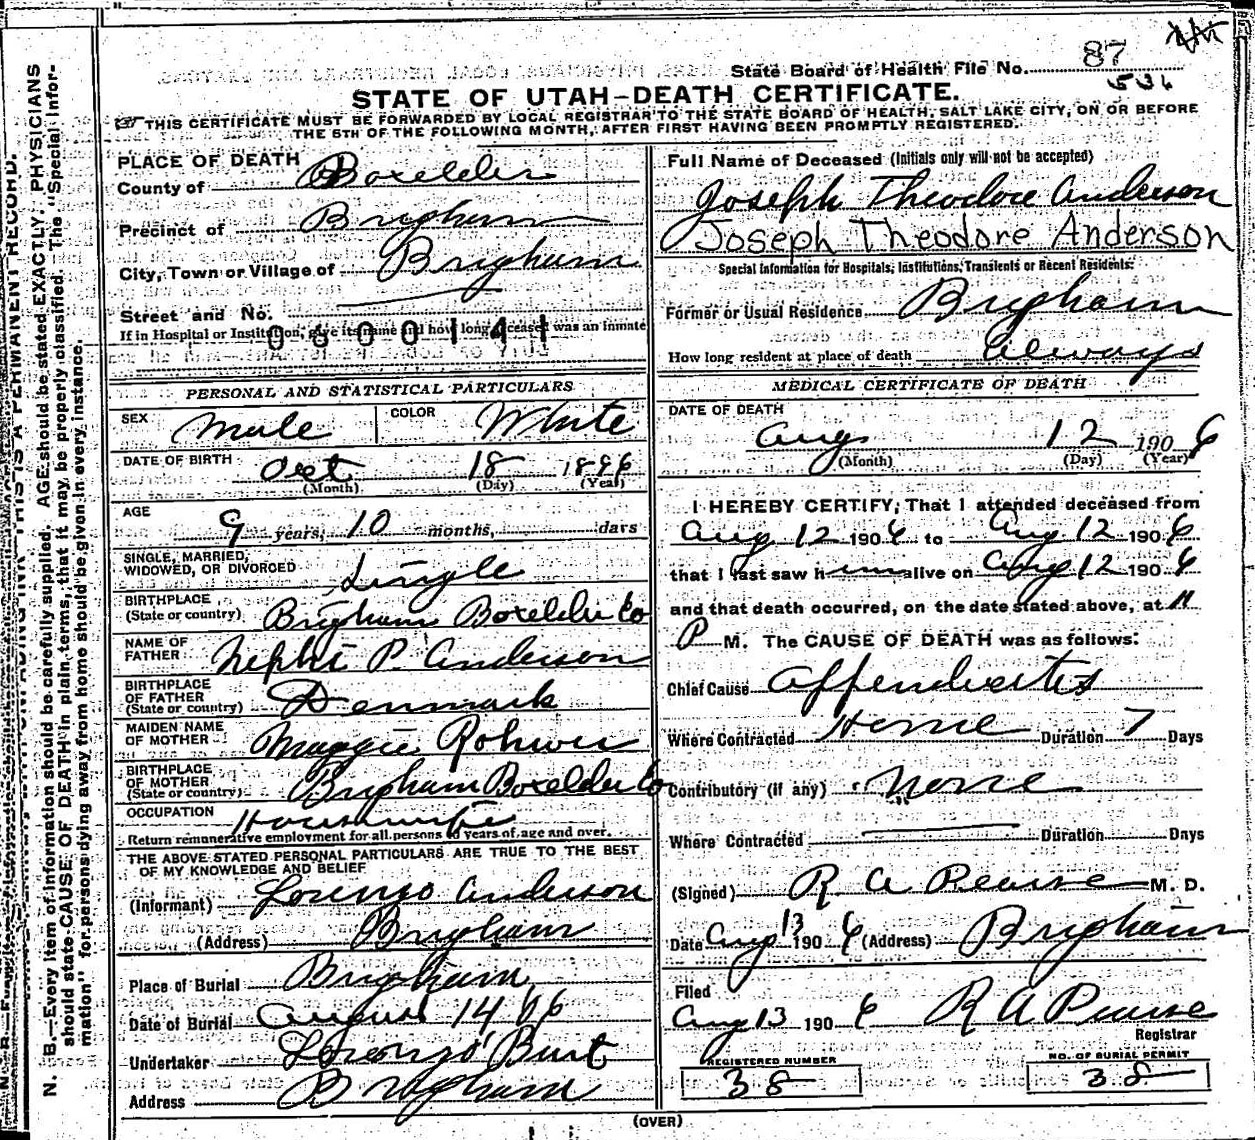 87
State Board of Health File No.
536
STATE OF UTAH-DEATH CERTIFICATE.
THIS CERTIFICATE MUST BE FORWARDED BY LOCAL REGISTRAR TO THE STATE BOARD OF HEALTH, SALT LAKE CITY, ON OR BEFORE
THE 5TH OF THE FOLLOWING MONTH, AFTER FIRST HAVING BEEN PROMPTLY REGISTERED.
PLACE OF DEATH
County of Boxelder
Precinct of Brigham
City, Town or Village of Brigham
Street and No.
If in Hospital or Institution, give its name and how long deceased was an inmate
0600141
PERSONAL AND STATISTICAL PARTICULARS
SEX Male COLOR White
DATE OF BIRTH Oct 18 1896
(Month) (Day) (Year)
AGE 9 years, 10 months, days
SINGLE, MARRIED,
WIDOWED, OR DIVORCED Single
BIRTHPLACE
(State or country) Brigham Boxelder Co
NAME OF
FATHER Nephi P. Anderson
BIRTHPLACE
OF FATHER
(State or country) Denmark
MAIDEN NAME
OF MOTHER Maggie Rohwer
BIRTHPLACE
OF MOTHER
(State or country) Brigham Boxelder Co
OCCUPATION Housewife
Return remunerative employment for all persons 10 years of age and over.
THE ABOVE STATED PERSONAL PARTICULARS ARE TRUE TO THE BEST
OF MY KNOWLEDGE AND BELIEF
(Informant) Lorenzo Anderson
(Address) Brigham
Place of Burial Brigham
Date of Burial August 14 06
Undertaker Lorenzo Burt
Address Brigham
Full Name of Deceased (Initials only will not be accepted)
Joseph Theodore Anderson
Joseph Theodore Anderson
Special Information for Hospitals, Institutions, Transients or Recent Residents:
Former or Usual Residence Brigham
How long resident at place of death Always
MEDICAL CERTIFICATE OF DEATH
DATE OF DEATH
Aug 12 1906
(Month) (Day) (Year)
I HEREBY CERTIFY, That I attended deceased from
Aug 12 1906 to Aug 12 1906
that I last saw him alive on Aug 12 1906
and that death occurred, on the date stated above, at 11
P M. The CAUSE OF DEATH was as follows:
Chief Cause Appendicites
Where Contracted Home Duration 7 Days
Contributory (if any) None
Where Contracted Duration Days
(Signed) R A Pearse M. D.
Date Aug 13 1906 (Address) Brigham
Filed
Aug 13 1906 R A Pearse
Registrar
REGISTERED NUMBER
38
NO. OF BURIAL PERMIT
38
(OVER)
N. B.—Every item of information should be carefully supplied. AGE should be stated EXACTLY. PHYSICIANS
should state CAUSE OF DEATH in plain terms, that it may be properly classified. The "Special Infor-
mation" for persons dying away from home should be given in every instance.
THIS IS A PERMANENT RECORD.